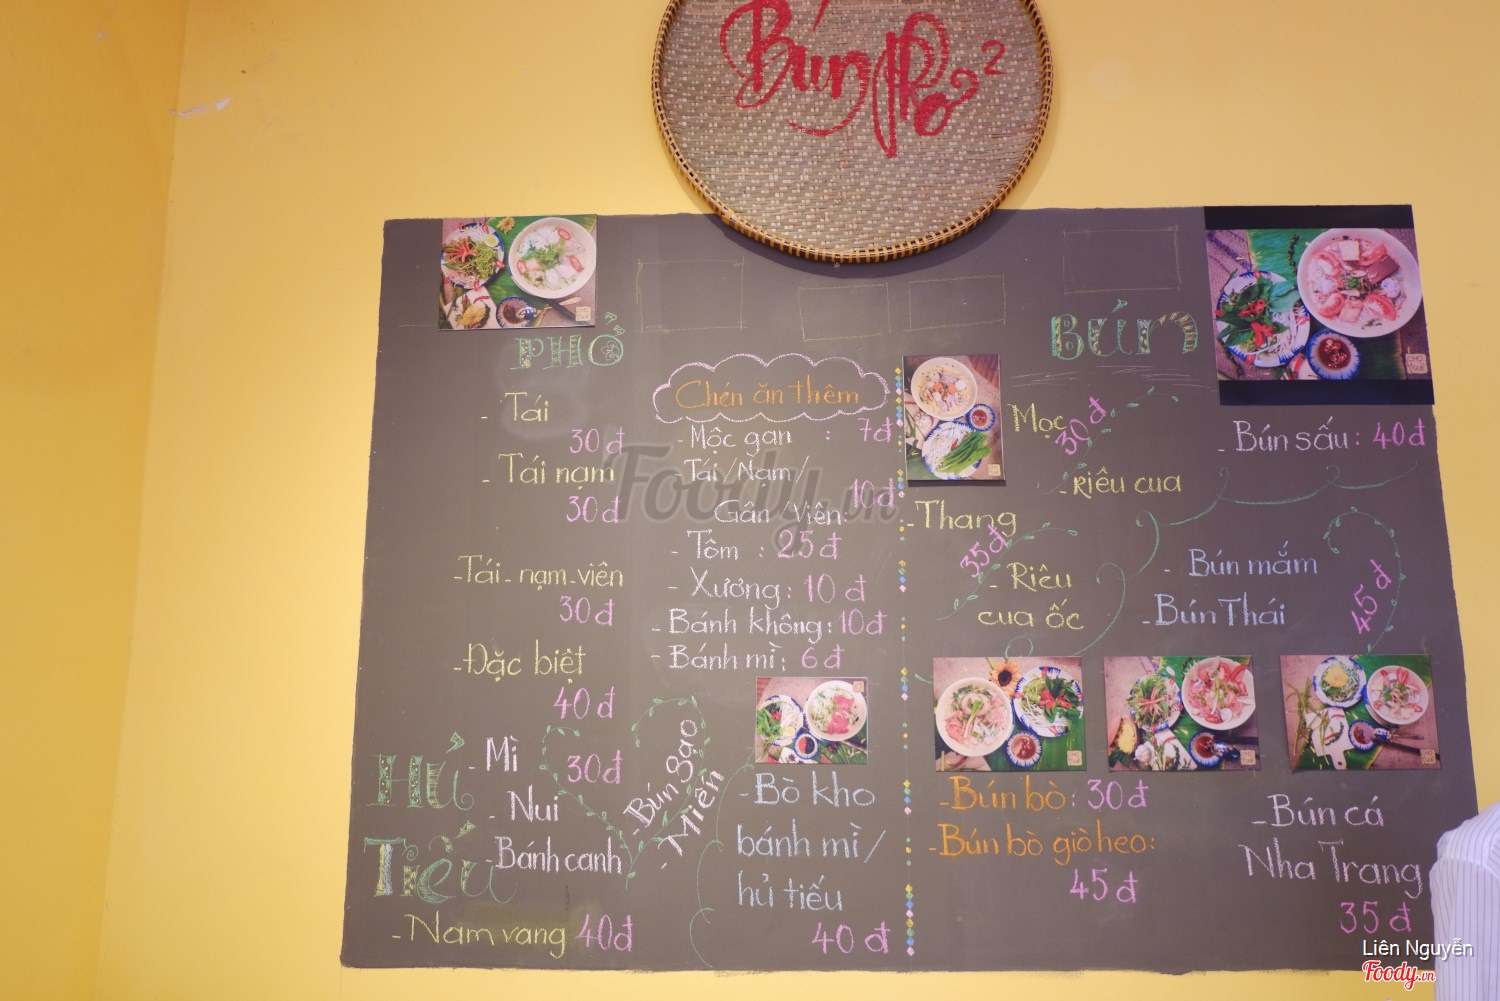 Bún Phở 2
PHỞ
- Tái
30đ
- Tái nạm
30đ
- Tái - nạm - viên
30đ
- Đặc biệt
40đ
HỦ TIẾU
- Mì
30đ
- Nui
- Bánh canh
- Bún gạo
- Miến
- Nam vang 40đ
Chén ăn thêm
- Mộc gan : 7đ
Tái/Nạm/
Gân/Viên: 10đ
- Tôm : 25đ
- Xương: 10đ
- Bánh không: 10đ
- Bánh mì: 6đ
- Bò kho
bánh mì/
hủ tiếu
40đ
BÚN
Mọc
30đ
- Riêu cua
- Thang
35đ
- Riêu
cua ốc
- Bún sấu: 40đ
- Bún mắm
- Bún Thái
45đ
- Bún bò: 30đ
- Bún bò giò heo:
45đ
- Bún cá
Nha Trang
35đ
Foody.vn
Liên Nguyễn
Foody.vn